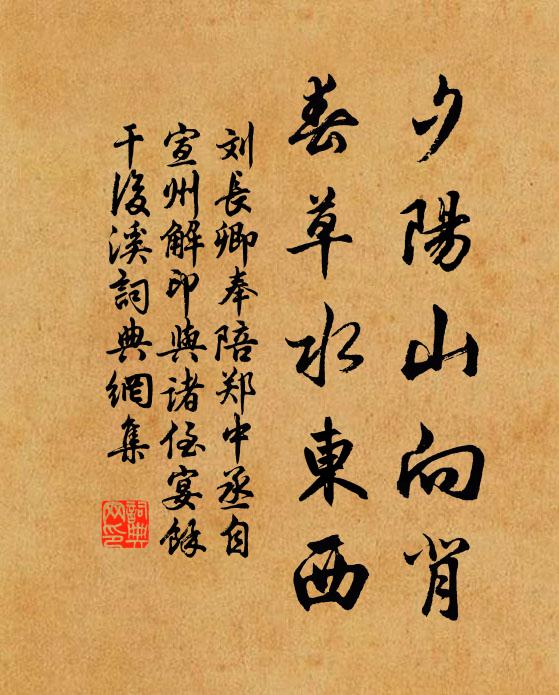 夕陽山向背
春草水東西
刘長卿奉陪郑中丞自
宣州解印與諸侄宴餘
干後溪詞典網集
詞典
网印